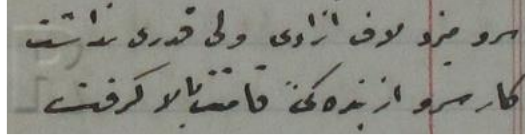 سرو میزد لاف ازادی ولی قدری نداشت
کار سرو از بندگی قامتت بالا گرفت